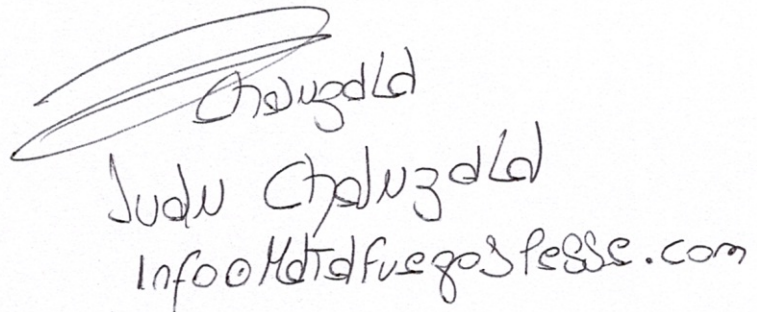 Chanzala
Juan Chanzala
Info@Matafuegospesse.com